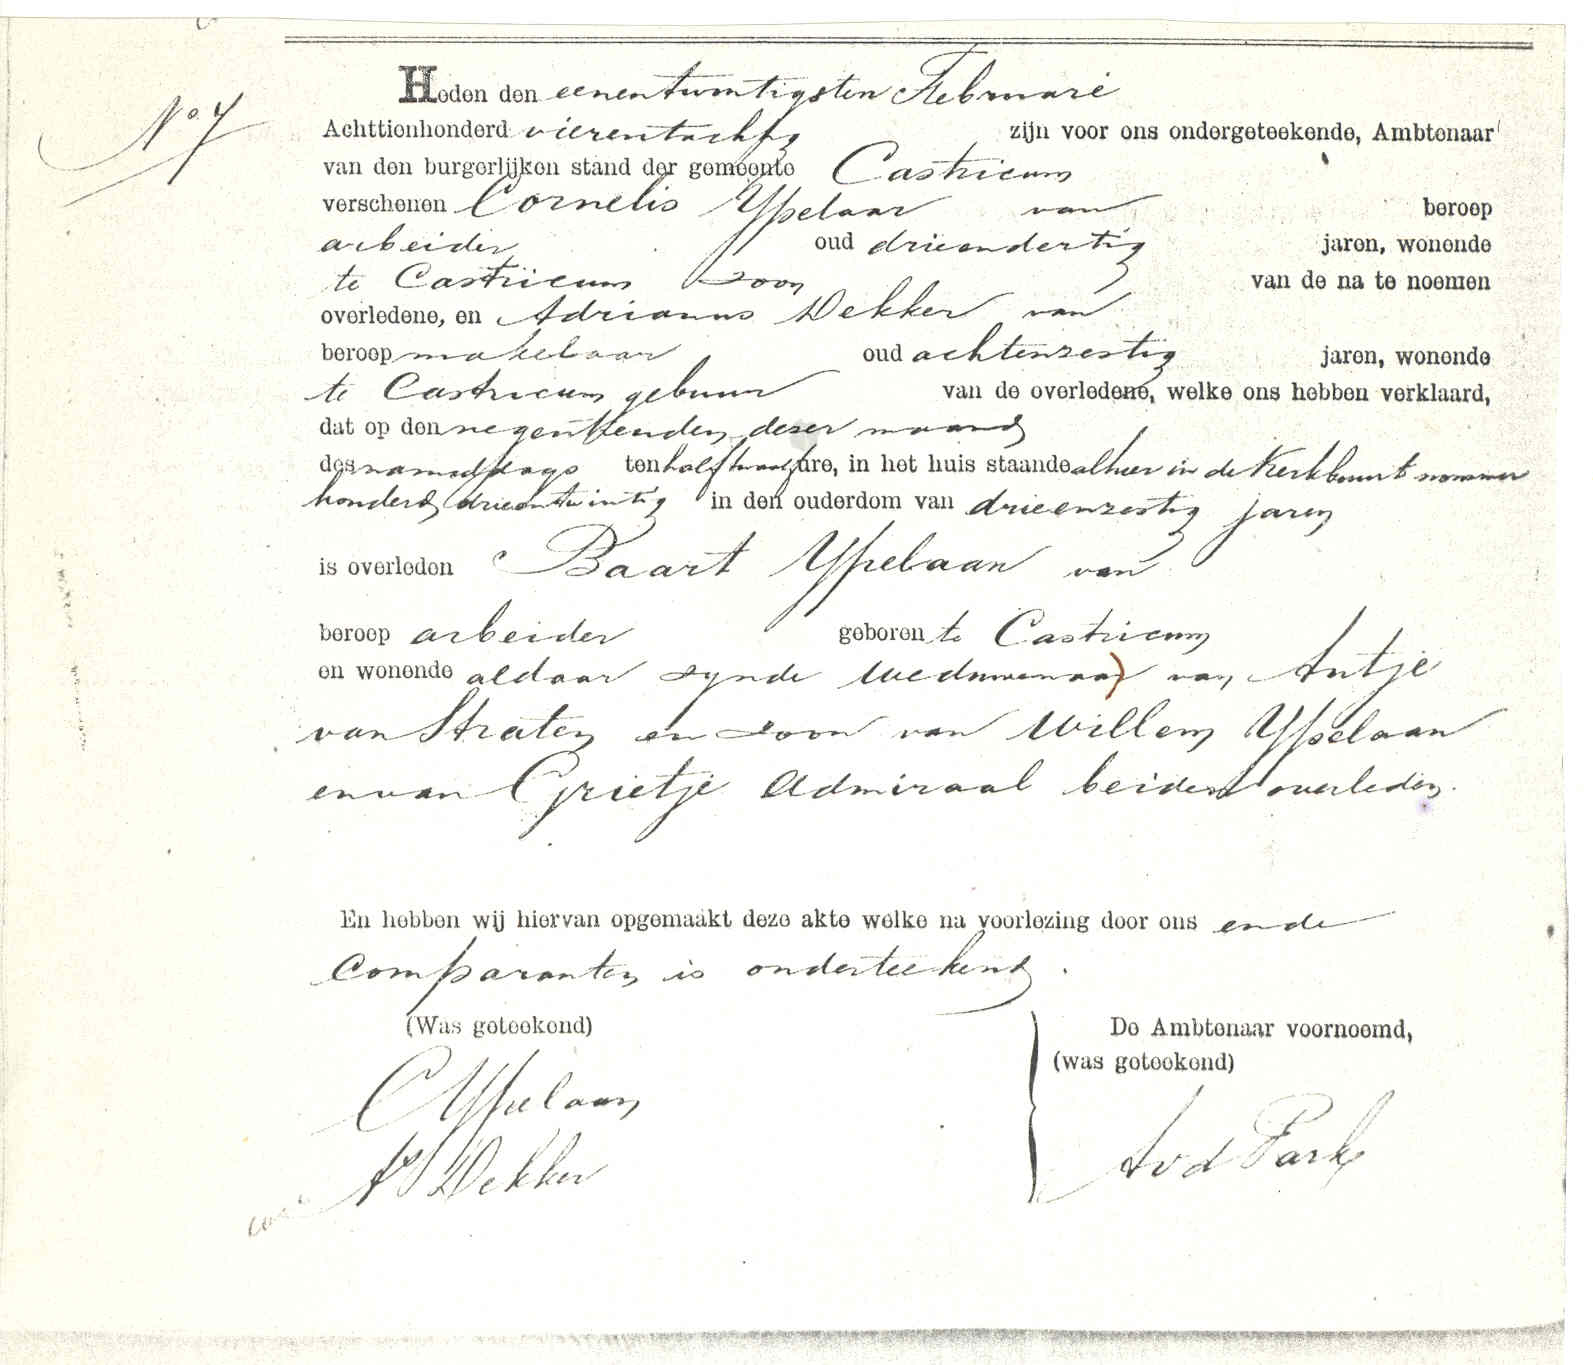 No 7
Heden den eenentwintigsten Februari
Achttienhonderd vierentachtig zijn voor ons ondergeteekende, Ambtenaar
van den burgerlijken stand der gemeente Castricum
verschenen Cornelis Ypelaan van beroep
arbeider oud drieendertig jaren, wonende
te Castricum zoon van de na te noemen
overledene, en Adrianus Dekker van
beroep makelaar oud achtenzestig jaren, wonende
te Castricum gebuur van de overledene, welke ons hebben verklaard,
dat op den negentienden dezer maand
des namiddags ten half twaalf ure, in het huis staande alhier in de Kerkbuurt nommer
honderd drieentwintig in den ouderdom van drieenzestig jaren
is overleden Baart Ypelaan van
beroep arbeider geboren te Castricum
en wonende aldaar zynde weduwenaar van Antje
van Straten en zoon van Willem Ypelaan
en van Grietje Admiraal beiden overleden.
En hebben wij hiervan opgemaakt deze akte welke na voorlezing door ons en de
Comparanten is onderteekend.
(Was geteekend) De Ambtenaar voornoemd,
(was geteekend)
C Ypelaan
A Dekker